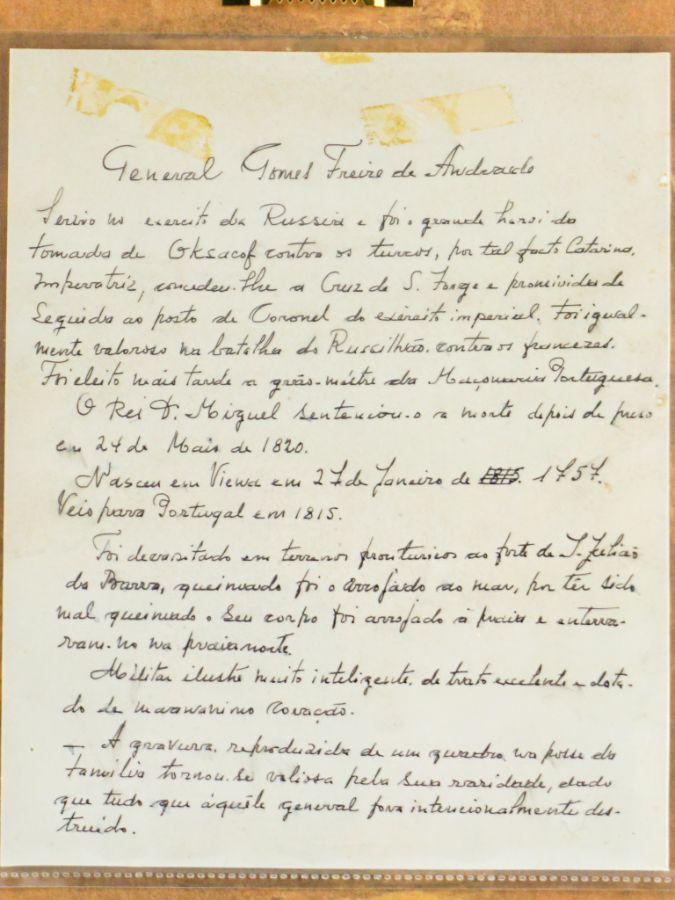 General Gomes Freire de Andrade
Serviu no exercito da Russia e foi o grande heroi da
tomada de Oksacof contra os turcos, por tal facto Catarina,
Imperatriz, concedeu-lhe a Cruz de S. Jorge e promovido de
Seguida ao posto de Coronel do exército imperial. Foi igual-
mente valoroso na batalha do Russilhão. contra os francezes.
Foi eleito mais tarde a grão-méstre da Maçonaria Portuguesa.
O Rei D. Miguel sentenciou-o a morte depois de preso
em 24 de Maio de 1820.
Nasceu em Viena em 27 de Janeiro de 1757.
Veio para Portugal em 1815.
Foi em terrenos ao forte de S. Julião
da Barra, queimado foi o arrojado ao mar, por têr sido
mal queimado o seu corpo foi arrojado á praia e enterra-
ram-no na praia norte.
Militar ilustre muito inteligente, de trato excelente e dota-
do de coração.
— A gravura, reproduzida de um quadro na posse da
familia tornou-se valiosa pela sua raridade, dado
que tudo que áquêle general fora intencionalmente des-
truido.